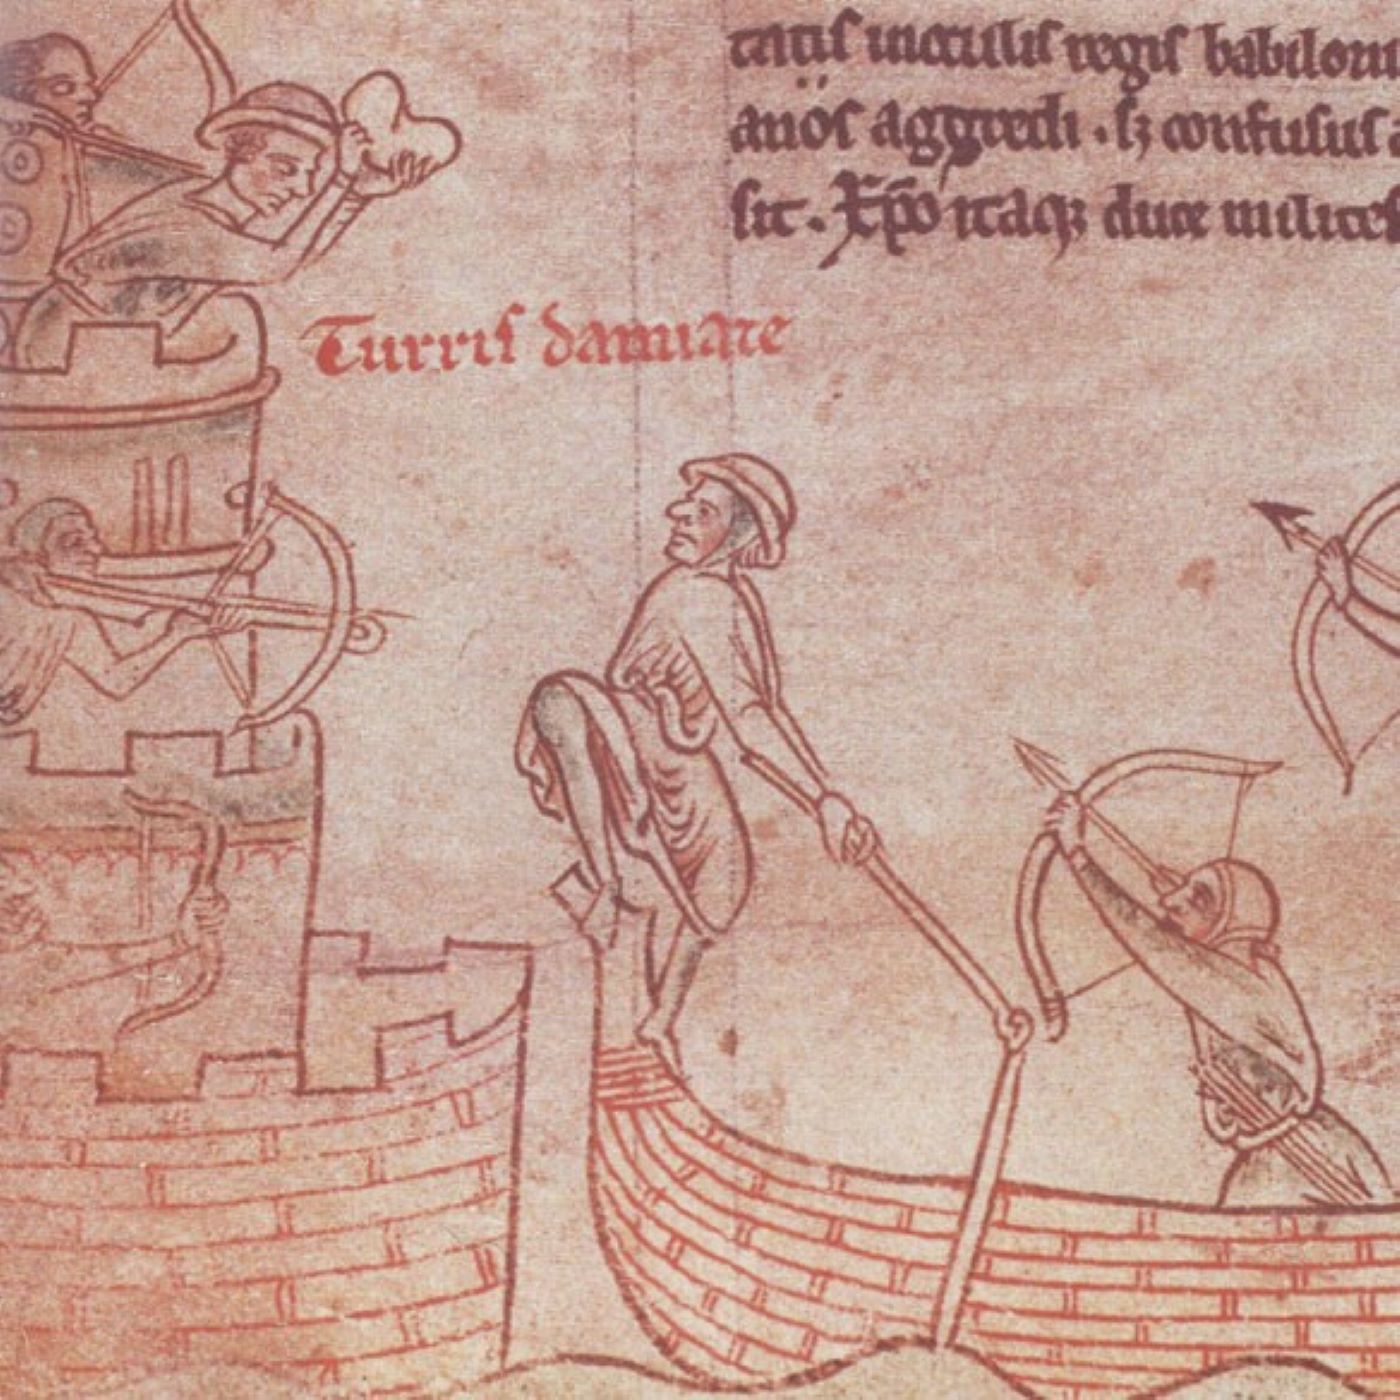 tatis regis babilon
anos aggredi . sz confusus
sit . Xp̄o itaqꝫ duce milites
Turris damiate